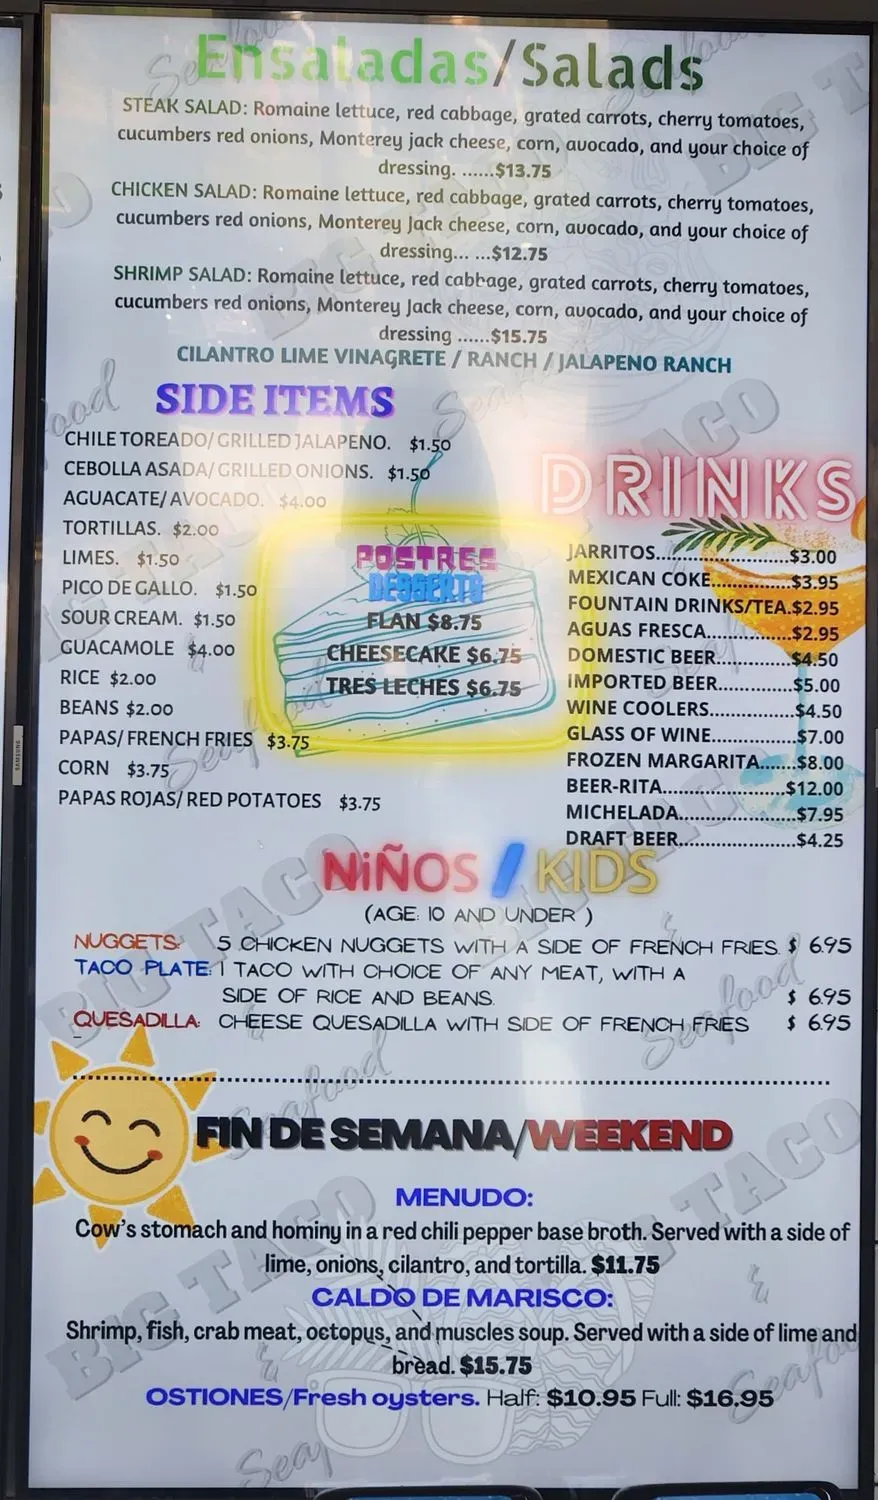 Ensaladas/Salads
STEAK SALAD: Romaine lettuce, red cabbage, grated carrots, cherry tomatoes,
cucumbers red onions, Monterey jack cheese, corn, avocado, and your choice of
dressing. ......$13.75
CHICKEN SALAD: Romaine lettuce, red cabbage, grated carrots, cherry tomatoes,
cucumbers red onions, Monterey Jack cheese, corn, avocado, and your choice of
dressing... ...$12.75
SHRIMP SALAD: Romaine lettuce, red cabbage, grated carrots, cherry tomatoes,
cucumbers red onions, Monterey Jack cheese, corn, avocado, and your choice of
dressing ......$15.75
CILANTRO LIME VINAGRETE / RANCH / JALAPENO RANCH
SIDE ITEMS
CHILE TOREADO/ GRILLED JALAPENO. $1.50
CEBOLLA ASADA/ GRILLED ONIONS. $1.50
AGUACATE/ AVOCADO. $4.00
TORTILLAS. $2.00
LIMES. $1.50
PICO DE GALLO. $1.50
SOUR CREAM. $1.50
GUACAMOLE $4.00
RICE $2.00
BEANS $2.00
PAPAS/ FRENCH FRIES $3.75
CORN $3.75
PAPAS ROJAS/ RED POTATOES $3.75
POSTRES
DESSERTS
FLAN $8.75
CHEESECAKE $6.75
TRES LECHES $6.75
DRINKS
JARRITOS.......................$3.00
MEXICAN COKE..............$3.95
FOUNTAIN DRINKS/TEA.$2.95
AGUAS FRESCA..............$2.95
DOMESTIC BEER.............$4.50
IMPORTED BEER.............$5.00
WINE COOLERS..............$4.50
GLASS OF WINE..............$7.00
FROZEN MARGARITA......$8.00
BEER-RITA.....................$12.00
MICHELADA....................$7.95
DRAFT BEER....................$4.25
NiÑOS / KIDS
(AGE: 10 AND UNDER )
NUGGETS: 5 CHICKEN NUGGETS WITH A SIDE OF FRENCH FRIES. $ 6.95
TACO PLATE: 1 TACO WITH CHOICE OF ANY MEAT, WITH A
SIDE OF RICE AND BEANS. $ 6.95
QUESADILLA: CHEESE QUESADILLA WITH SIDE OF FRENCH FRIES $ 6.95
FIN DE SEMANA/WEEKEND
MENUDO:
Cow's stomach and hominy in a red chili pepper base broth. Served with a side of
lime, onions, cilantro, and tortilla. $11.75
CALDO DE MARISCO:
Shrimp, fish, crab meat, octopus, and muscles soup. Served with a side of lime and
bread. $15.75
OSTIONES/Fresh oysters. Half: $10.95 Full: $16.95
BIG TACO
& Seafood
SAMSUNG